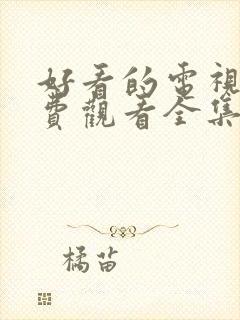 好看的電視
費觀看全集
橘苗